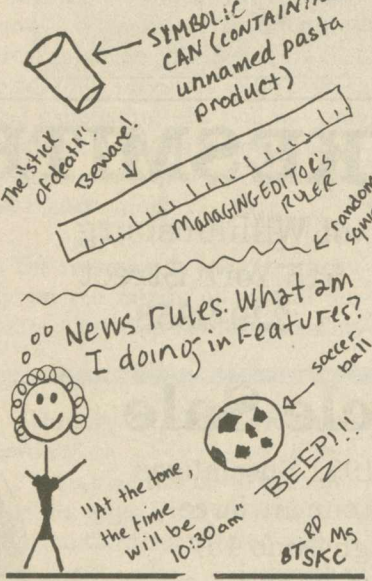 SYMBOLIC
CAN (CONTAINING
unnamed pasta
product)
The "stick
of death".
Beware!
MANAGING EDITOR'S
RULER
random
News rules. What am
I doing in Features?
soccer
ball
BEEP!!!
"At the tone,
the time
will be
10:30am
RD
MS
BT
SKC